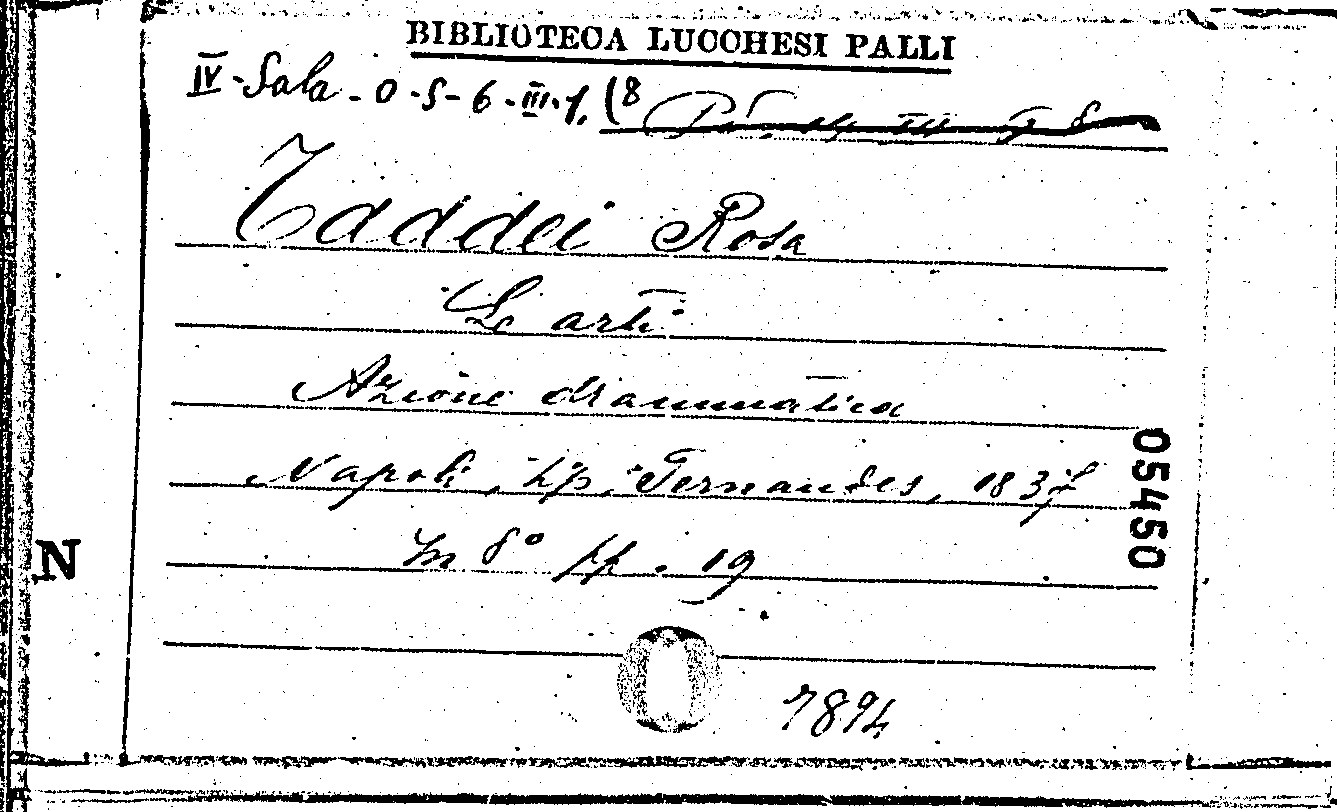 BIBLIOTECA LUCCHESI PALLI
IV - Sala - O - S - 6 - III - 1. (8
Taddei Rosa
Le arti
Azione drammatica
Napoli, tip. Fernandes, 1837
in 8° pp. 19
7894
05450
N